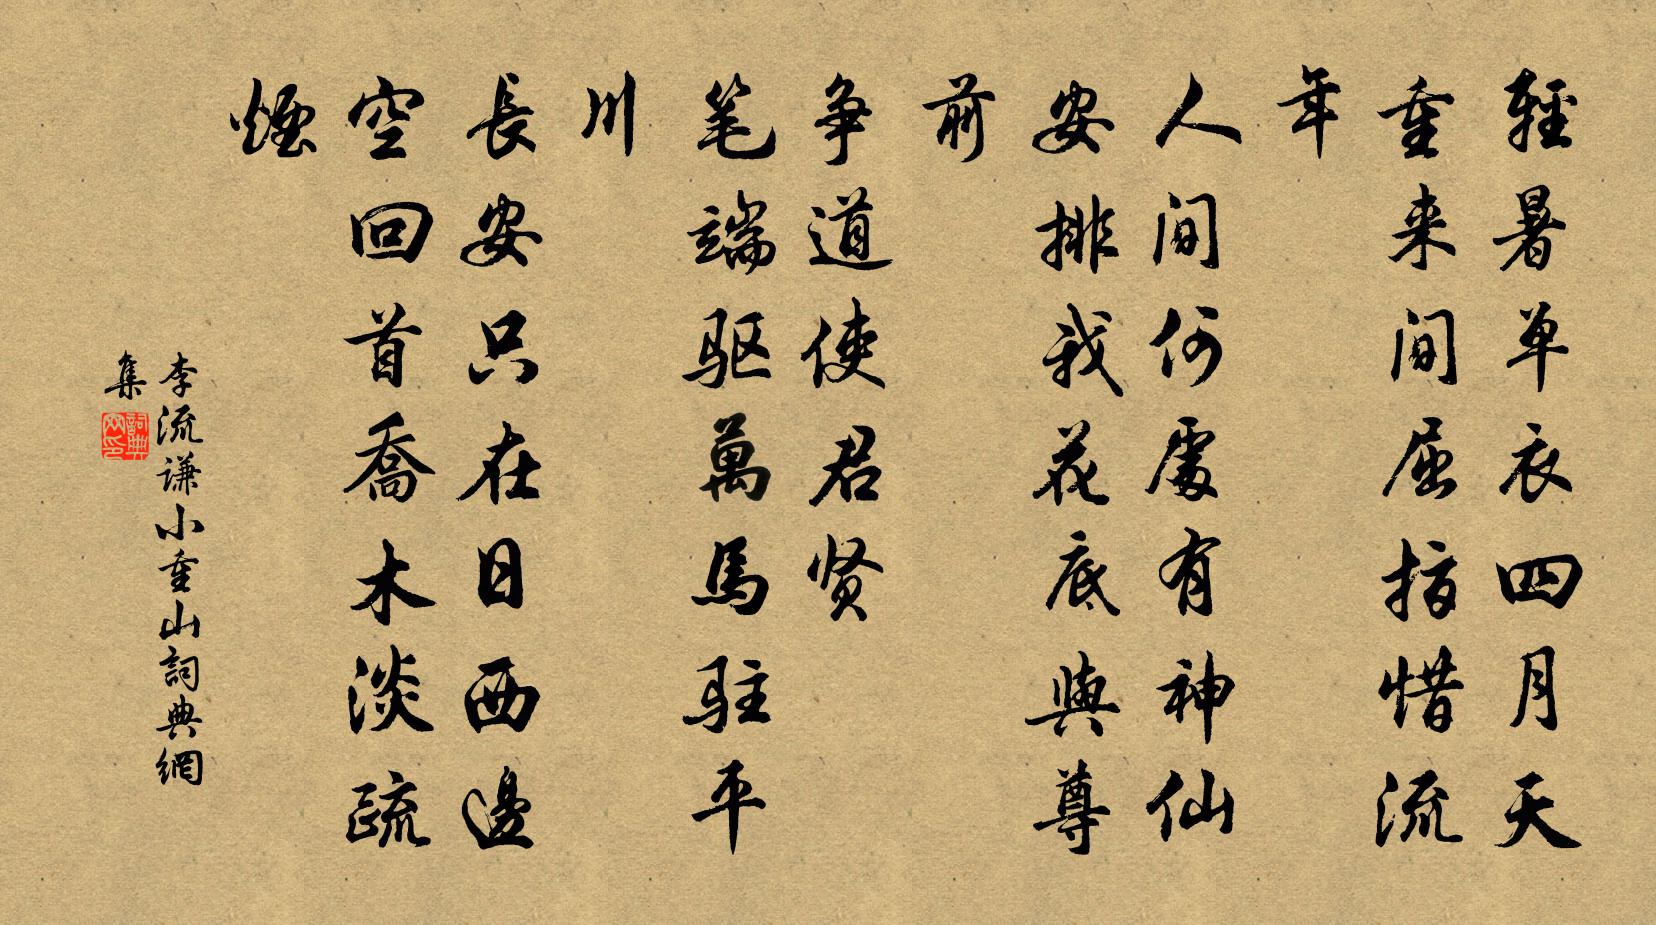 輕暑單衣四月天
重来間屈指惜流
年
人間何處有神仙
安排我花底與尊
前
争道使君贤
笔端驱萬馬驻平
川
長安只在日西邊
空回首喬木淡疏
煙
李流谦小重山詞典網
集
詞典
网印